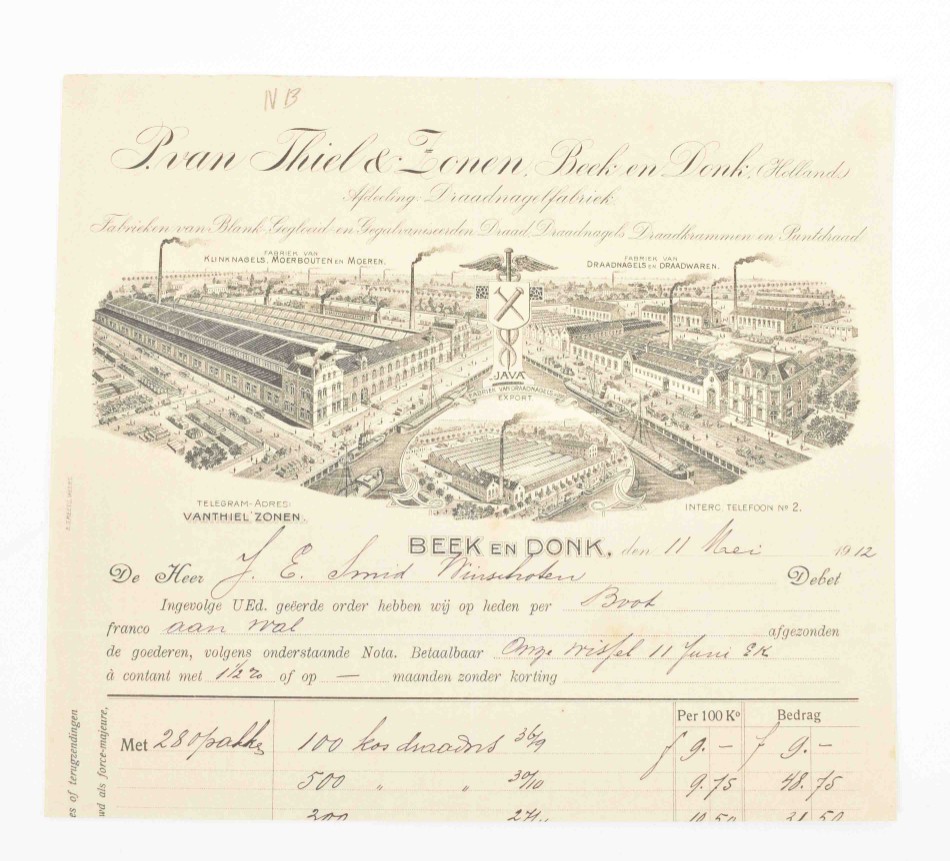 N B
P. van Thiel & Zonen, Beek en Donk, (Holland)
Afdeeling: Draadnagelfabriek
Fabrieken van Blank-Gegloeid- en Gegalvaniseerden Draad, Draadnagels, Draadkrammen en Puntdraad
FABRIEK VAN
KLINKNAGELS, MOERBOUTEN EN MOEREN.
FABRIEK VAN
DRAADNAGELS EN DRAADWAREN.
JAVA
FABRIEK VAN DRAADNAGELS
EXPORT
TELEGRAM-ADRES:
VANTHIEL ZONEN.
INTERC. TELEFOON No 2.
BEEK EN DONK, den 11 Mei 1912
De Heer J. E. Smid Winschoten Debet
Ingevolge UEd. geëerde order hebben wij op heden per Boot
franco aan wal afgezonden
de goederen, volgens onderstaande Nota. Betaalbaar Onze wissel 11 Juni
à contant met 1½% of op — maanden zonder korting
Per 100 Ko Bedrag
Met 280 pakken 100 kos draadn 36/9 f 9.- f 9.-
500 " " 30/10 9.75 48.75
200 10 50 21 50
es of terugzendingen
wd als force-majeure,